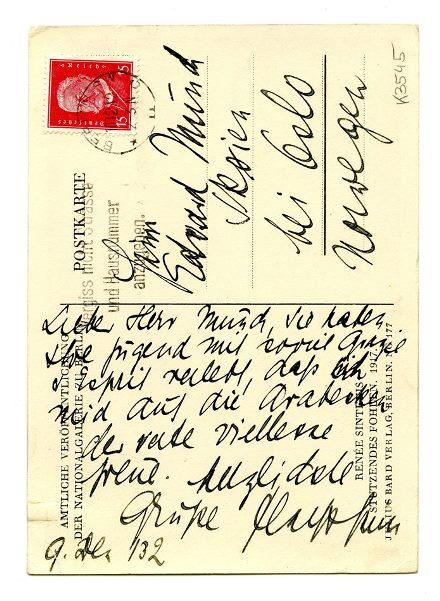 K3545
15 Deutsches Reich 15
BERLIN
POSTKARTE
Vergiss nicht Strasse
und Hausnummer
anzugeben.
Herrn
Edvard Munch
Skøien
bei Oslo
Norwegen
Lieber Herr Munch, Sie haten
Ihre Jugend mit soviel
Esprit verlebt, dass ich
mich auf die Arabesken
der verte Viellesse
freue. Herzlichste
Grüße
9. Dez 32
AMTLICHE VERÖFFENTLICHUNG
DER NATIONALGALERIE ZU BERLIN
RENÉE SINTENIS
STÜTZENDES FOHLEN, 1917
JULIUS BARD VERLAG, BERLIN, Nr. 177